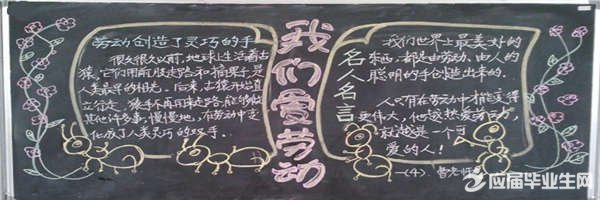 劳动创造了灵巧的手
很久很久以前,地球上生活着古
猿。它们用前肢走路和摘果子,是
人类最早的祖先。后来,古猿开始直
立行走。猿手再用来走路,能够做
其他许多事,慢慢地,在劳动中变
化成了人类灵巧的双手。
我们爱劳动
名人名言
我们世界上最美好的
东西,都是由劳动、由人的
聪明的手创造出来的。
人只有在劳动中才能变得
更伟大,他这热爱劳动,
就越是一个可
爱的人!
一(4)
曹老师
应届毕业生网